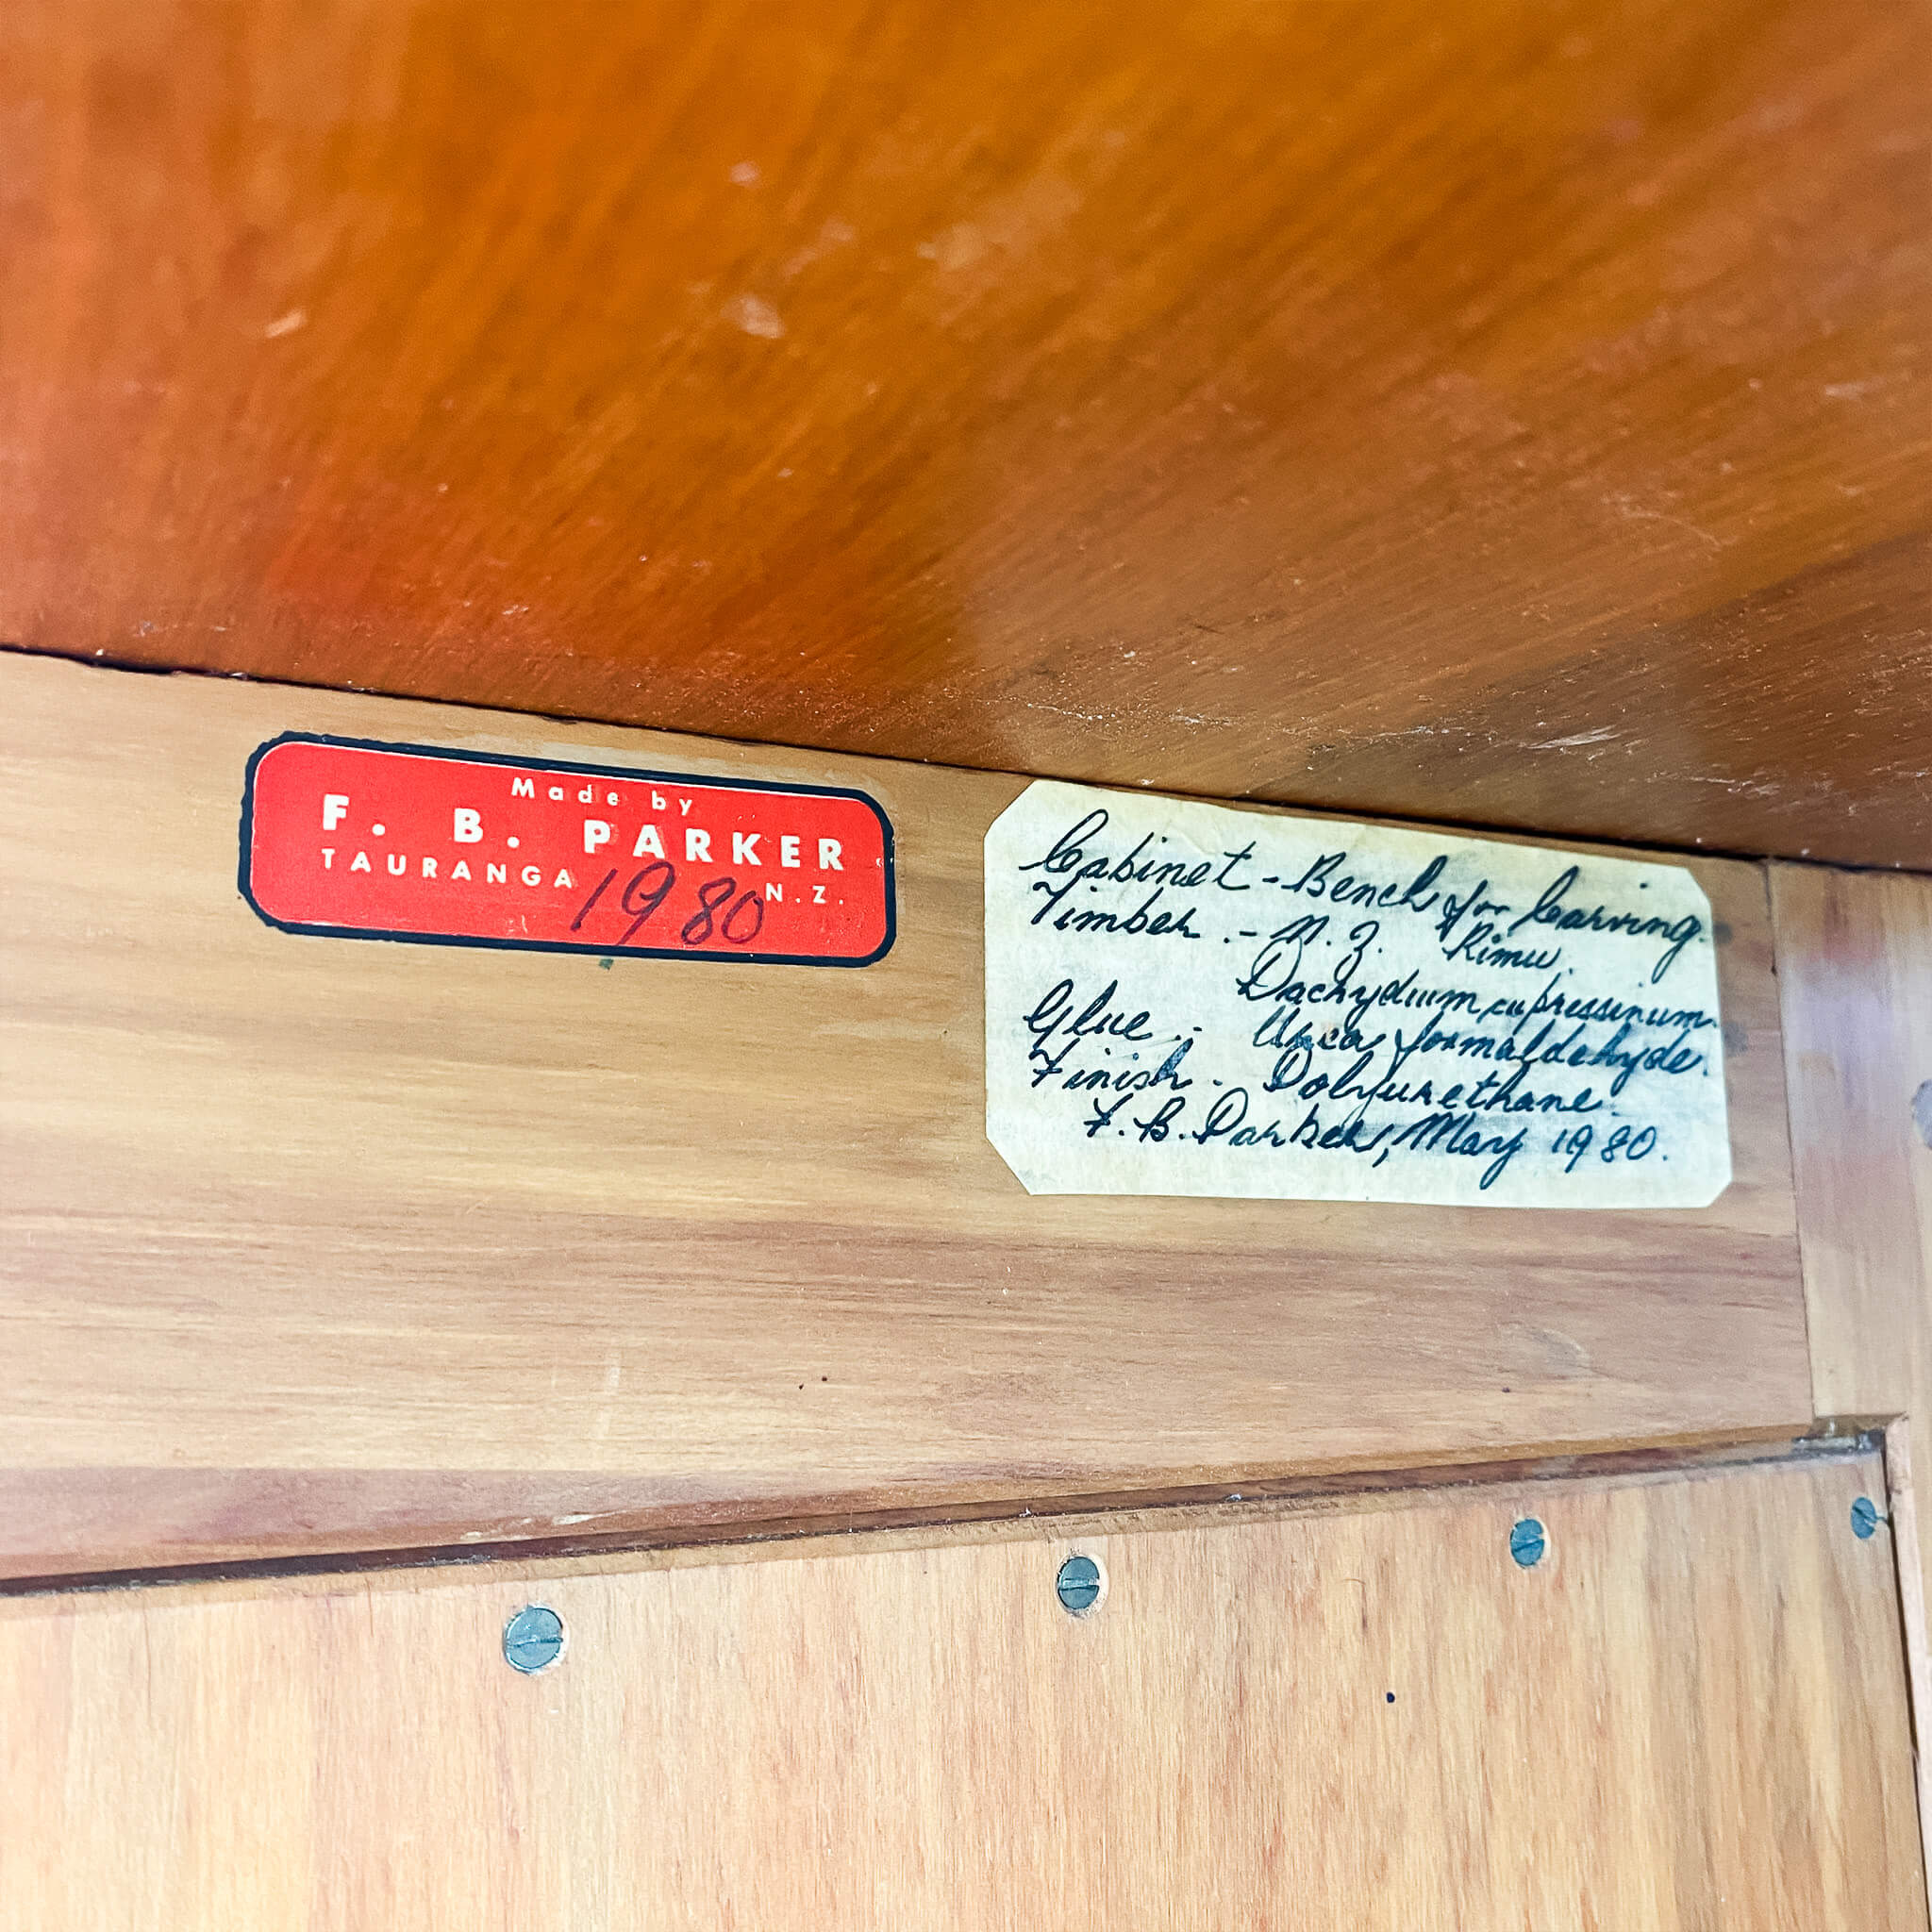 Made by
F. B. PARKER
TAURANGA N.Z.
1980
Cabinet - Bench for Carving.
Timber .- N.Z. Rimu.
Dacrydium cupressinum.
Glue :- Urea formaldehyde.
Finish - Polyurethane.
F. B. Parker, May 1980.